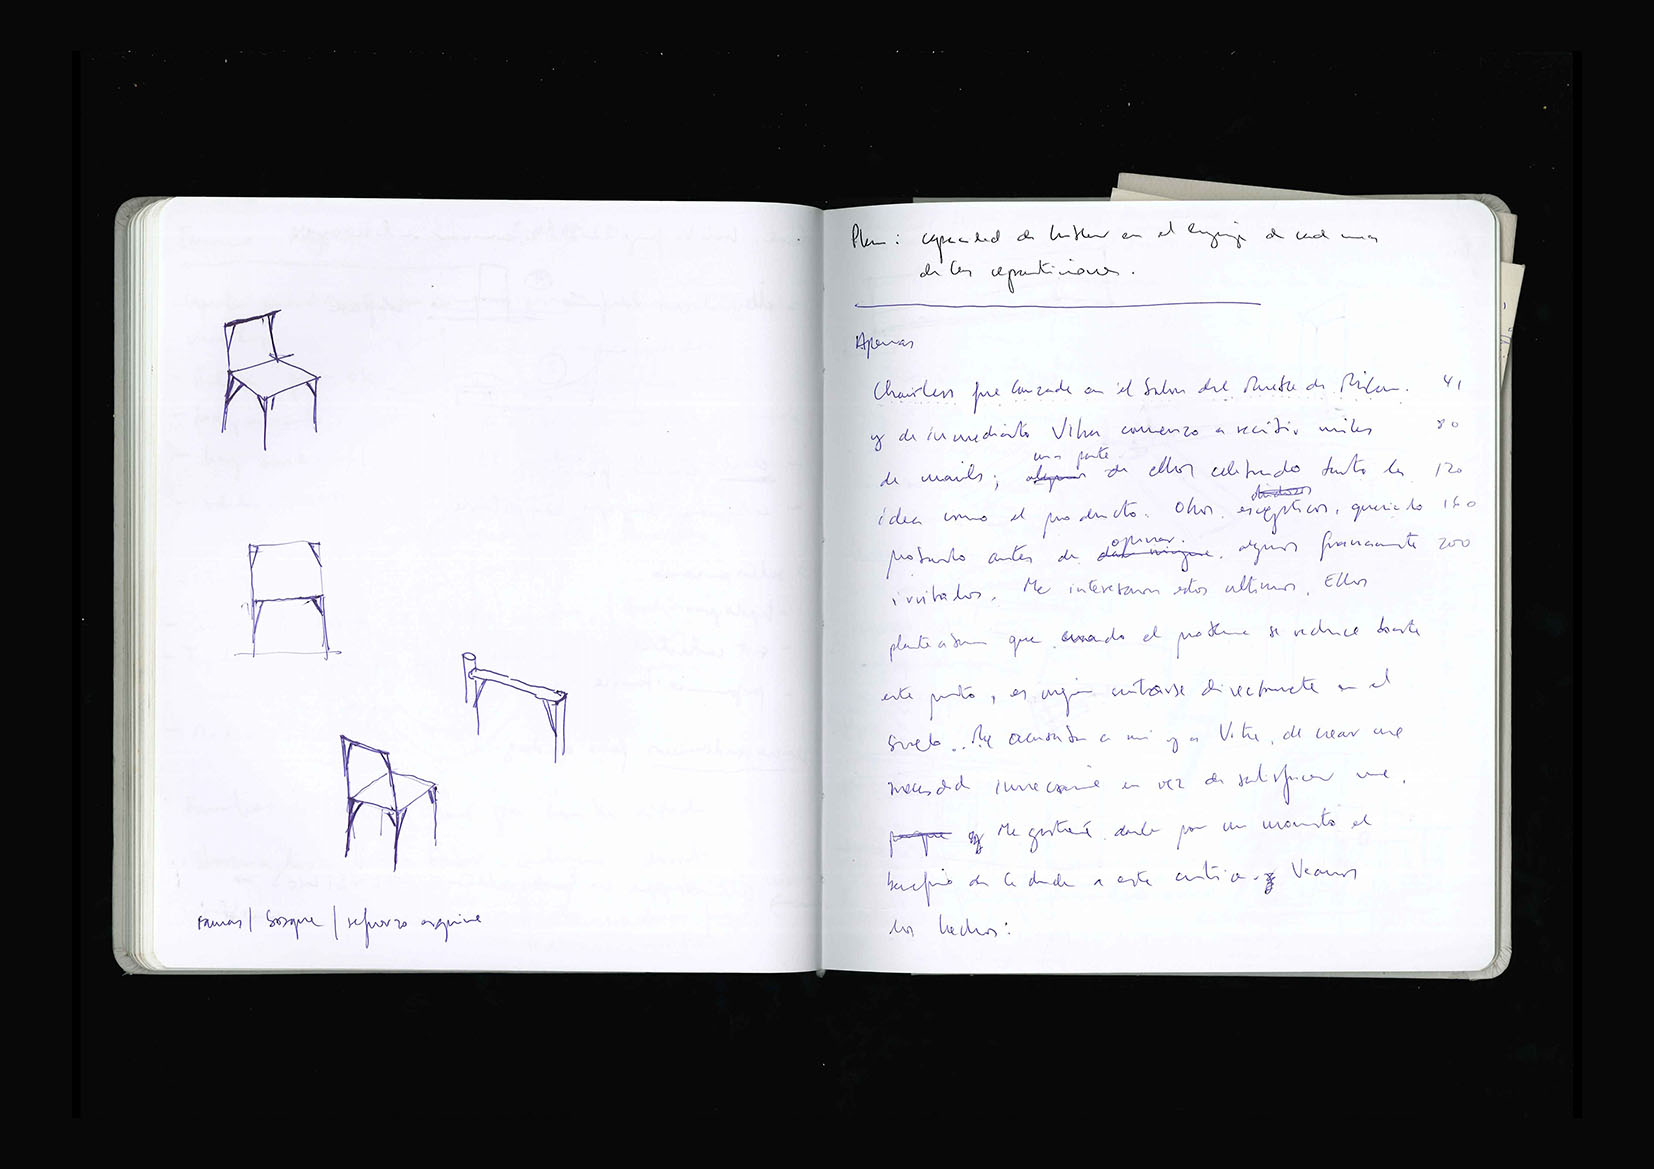 ramas / bosque / refuerzo esquina
Plan: capacidad de hablar en el lenguaje de cada una
de las reparticiones.
Apenas
Chairless fue lanzada en el Salon del Mueble de Milan. 41
y de inmediato Vitra comenzo a recibir miles 80
una parte
de mails; de ellos celebrando tanto la 120
idea como el producto. Otros, escepticos, queriendo 160
opinar.
probarlo antes de algunos francamente 200
irritados. Me interesaron estos ultimos. Ellos
planteaban que cuando el problema se reduce hasta
este punto, es mejor sentarse directamente en el
suelo. Me acusaban a mi y a Vitra, de crear una
necesidad innecesaria en vez de satisfacer una.
Me gustaria darle por un momento el
beneficio de la duda a esta critica. Veamos
los hechos: